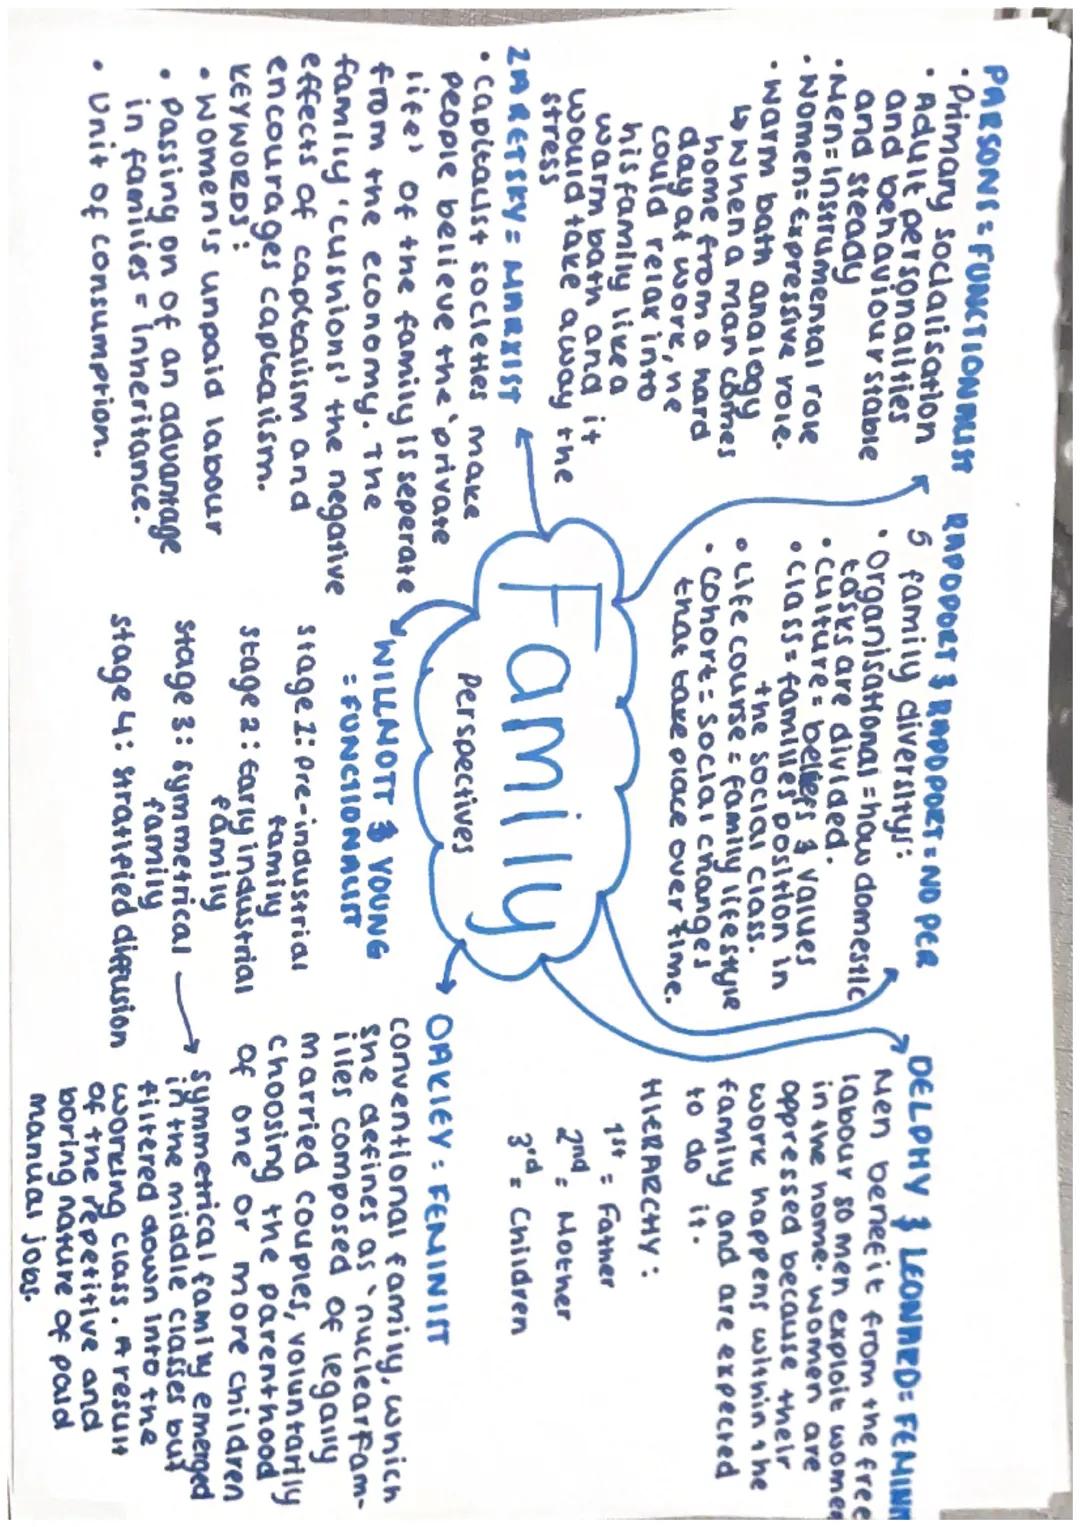 PARSONS = FUNCTIONALIST
• Primary socialisation
• Adult personalities
and behaviour stable
and steady
• Men = instrumental role
• Women = Expressive role.
• Warm bath analogy
↳ When a man comes
home from a hard
day at work, he
could relax into
his family like a
warm bath and it
would take away the
stress
RAPOPORT & RAPOPORT = NO PER
5 family diversitys:
• organisational = how domestic
tasks are divided.
• culture = beliefs & values
• class = families position in
the social class.
• Life course = family lifestyle
• cohort = social changes
that take place over time.
DELPHY & LEONARD = FEMIN
Men benefit from the free
labour so men exploit women
in the home. women are
oppressed because their
work happens within the
family and are expected
to do it.
HIERARCHY:
1st = Father
2nd = Mother
3rd = Children
Family
Perspectives
ZARETSKY = MARXIST
• Capitalist societies make
people believe the 'private
life' of the family is seperate
from the economy. The
family 'cushions' the negative
effects of capitalism and
encourages capitalism.
KEYWORDS:
• Women's unpaid labour
• Passing on of an advantage
in families = inheritance.
• Unit of consumption.
WILLMOTT & YOUNG
= FUNCTIONALIST
stage 1: Pre-industrial
family
stage 2: Early industrial
family
stage 3: symmetrical
family
stage 4: stratified diffusion
OAKLEY = FEMINIST
conventional family, which
she defines as 'nuclear fam-
ilies composed of legally
married couples, voluntarily
choosing the parenthood
of one or more children
symmetrical family emerged
in the middle classes but
filtered down into the
working class. A result
of the repetitive and
boring nature of paid
manual jobs.